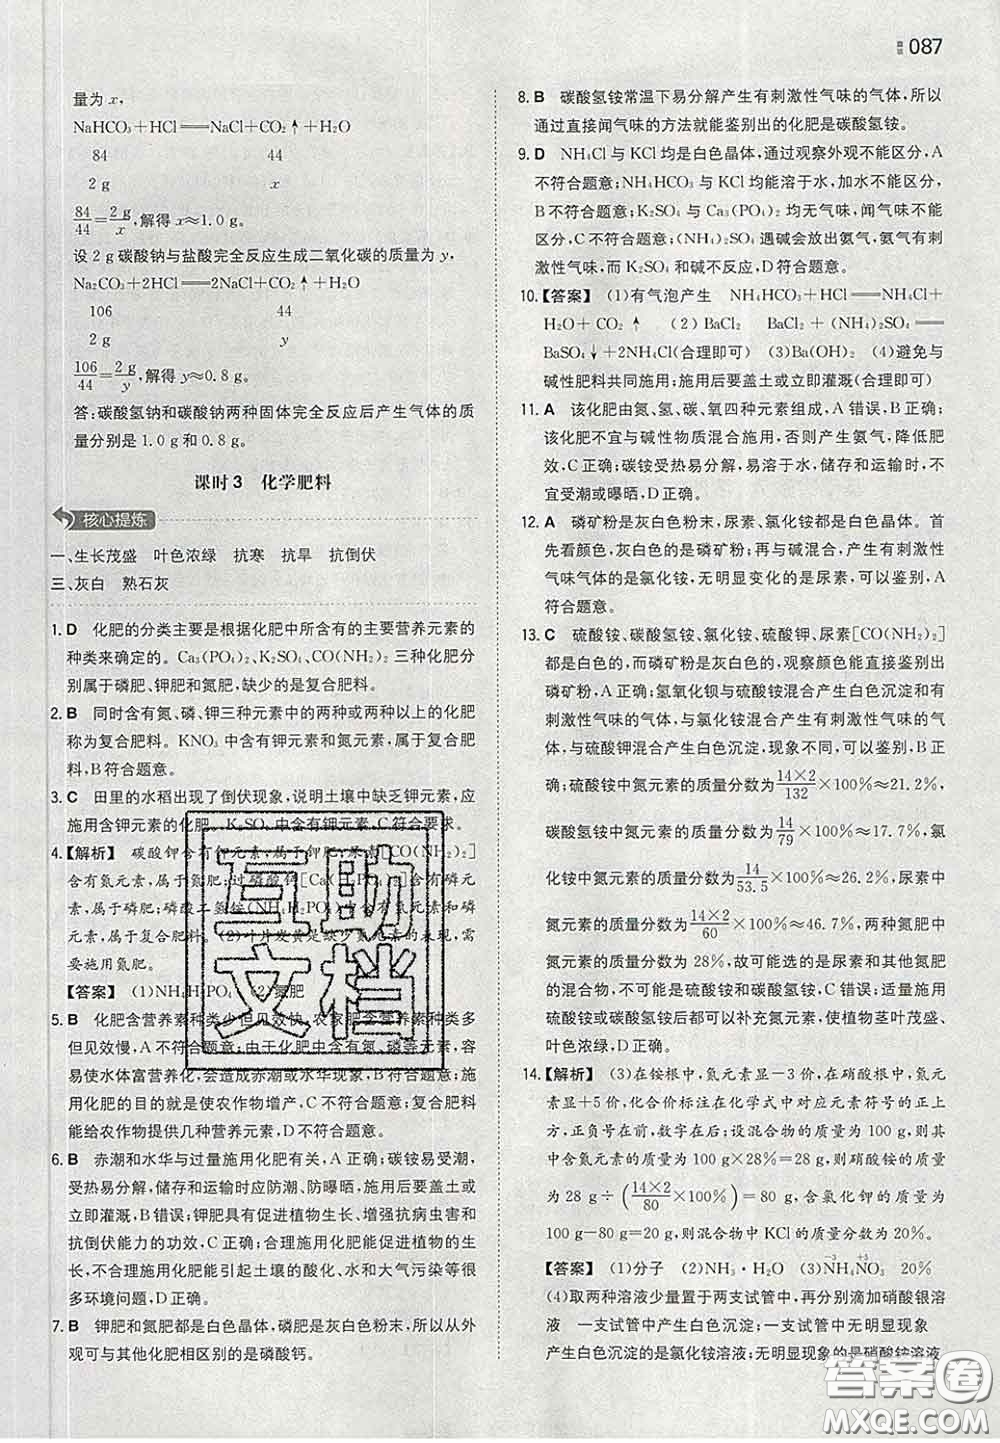 087
量为 x，
NaHCO₃+HCl══NaCl+CO₂↑+H₂O
84 44
2 g x
84/44=2 g/x，解得 x≈1.0 g。
设 2 g 碳酸钠与盐酸完全反应生成二氧化碳的质量为 y，
Na₂CO₃+2HCl══2NaCl+CO₂↑+H₂O
106 44
2 g y
106/44=2 g/y，解得 y≈0.8 g。
答：碳酸氢钠和碳酸钠两种固体完全反应后产生气体的质
量分别是 1.0 g 和 0.8 g。
课时 3 化学肥料
核心提炼
一、生长茂盛 叶色浓绿 抗寒 抗旱 抗倒伏
三、灰白 熟石灰
1. D 化肥的分类主要是根据化肥中所含有的主要营养元素的
种类来确定的。Ca₃(PO₄)₂、K₂SO₄、CO(NH₂)₂ 三种化肥分
别属于磷肥、钾肥和氮肥，缺少的是复合肥料。
2. B 同时含有氮、磷、钾三种元素中的两种或两种以上的化肥
称为复合肥料。KNO₃ 中含有钾元素和氮元素，属于复合肥
料，B 符合题意。
3. C 田里的水稻出现了倒伏现象，说明土壤中缺乏钾元素，应
施用含钾元素的化肥。K₂SO₄ 中含有钾元素，C 符合要求。
4.【解析】 碳酸钾含有钾元素，属于钾肥；尿素[CO(NH₂)₂]
含有氮元素，属于氮肥；过磷酸钙[Ca(H₂PO₄)₂]含有磷元
素，属于磷肥；磷酸二氢铵(NH₄H₂PO₄)含有氮元素和磷元
素，属于复合肥料。(2)叶片发黄是缺少氮元素的表现，需
要施用氮肥。
【答案】 (1)NH₄H₂PO₄ (2)氮肥
5. B 化肥含营养素种类少但见效快，农家肥含营养素种类多
但见效慢，A 不符合题意；由于化肥中含有氮、磷等元素，
易使水体富营养化，会造成赤潮或水华现象，B 符合题意；施
用化肥的目的就是使农作物增产，C 不符合题意；复合肥料
能给农作物提供几种营养元素，D 不符合题意。
6. B 赤潮和水华与过量施用化肥有关，A 正确；碳铵易受潮，
受热易分解，储存和运输时应防潮、防曝晒，施用后要盖土或
立即灌溉，B 错误；钾肥具有促进植物生长、增强抗病虫害和
抗倒伏能力的功效，C 正确；合理施用化肥能促进植物的生
长，不合理施用化肥能引起土壤的酸化、水和大气污染等很
多环境问题，D 正确。
7. B 钾肥和氮肥都是白色晶体，磷肥是灰白色粉末，所以从外
观可与其他化肥相区别的是磷酸钙。
8. B 碳酸氢铵常温下易分解产生有刺激性气味的气体，所以
通过直接闻气味的方法就能鉴别出的化肥是碳酸氢铵。
9. D NH₄Cl 与 KCl 均是白色晶体，通过观察外观不能区分，A
不符合题意；NH₄HCO₃ 与 KCl 均能溶于水，加水不能区分，
B 不符合题意；K₂SO₄ 与 Ca₃(PO₄)₂ 均无气味，闻气味不能
区分，C 不符合题意；(NH₄)₂SO₄ 遇碱能放出氨气，氨气有
刺激性气味，而 K₂SO₄ 和碱不反应，D 符合题意。
10.【答案】 (1)有气泡产生 NH₄HCO₃+HCl══NH₄Cl+
H₂O+CO₂↑ (2)BaCl₂ BaCl₂+(NH₄)₂SO₄══
BaSO₄↓+2NH₄Cl(合理即可) (3)Ba(OH)₂ (4)避免与
碱性肥料共同施用；施用后要盖土或立即灌溉(合理即可)
11. A 该化肥由氮、氢、碳、氧四种元素组成，A 错误，B 正确；
该化肥不宜与碱性物质混合施用，否则产生氨气，降低肥
效，C 正确；碳铵受热易分解，因此，储存和运输时，不
宜受潮或曝晒，D 正确。
12. A 磷矿粉是灰白色粉末，尿素、氯化铵都是白色晶体。首
先看颜色，灰白色的是磷矿粉；再与碱混合，产生有刺激性
气味气体的是氯化铵，无明显变化的是尿素，可以鉴别，A
符合题意。
13. C 硫酸铵、碳酸氢铵、氯化铵、硫酸钾、尿素[CO(NH₂)₂]
都是白色的，而磷矿粉是灰白色，观察颜色能直接鉴别出
磷矿粉，A 正确；氢氧化钡与硫酸铵混合产生白色沉淀和有
刺激性气味的气体，与氯化铵混合产生有刺激性气味的气
体，与硫酸钾混合产生白色沉淀，现象不同，可以鉴别，B 正
确；硫酸铵中氮元素的质量分数为14×2/132×100%≈21.2%，
碳酸氢铵中氮元素的质量分数为14/79×100%≈17.7%，氯
化铵中氮元素的质量分数为14/53.5×100%≈26.2%，尿素中
氮元素的质量分数为14×2/60×100%≈46.7%，两种氮肥中
氮元素的质量分数为 28%，故可能选的是尿素和其他氮肥
的混合物，不可能是硫酸铵和碳酸氢铵，C 错误；适量施用
硫酸铵或碳酸氢铵后都可以补充氮元素，使植物茎叶茂盛、
叶色浓绿，D 正确。
14.【解析】 (3)在铵根中，氮元素显-3 价，在硝酸根中，氮元
素显+5 价，化合价在化学式中对应元素符号的正上
方，正负号在前，数字在后；设混合物的质量为 100 g，则其
中含氮元素的质量为 100 g×28%=28 g，则硝酸铵的质量
为 28 g÷(14×2/80×100%)=80 g，含氯化钾的质量为
100 g-80 g=20 g，则混合物中 KCl 的质量分数为 20%。
【答案】 (1)分子 (2)NH₃·H₂O (3)N⁻³H₄N⁺⁵O₃ 20%
(4)取两种溶液少量置于两支试管中，再分别滴加硝酸银溶
液 一支试管中产生白色沉淀，一支试管中无明显现象
产生白色沉淀的是氯化铵溶液；无明显现象的是硝酸铵溶液
互助
文档
答案圈
MXQE.COM